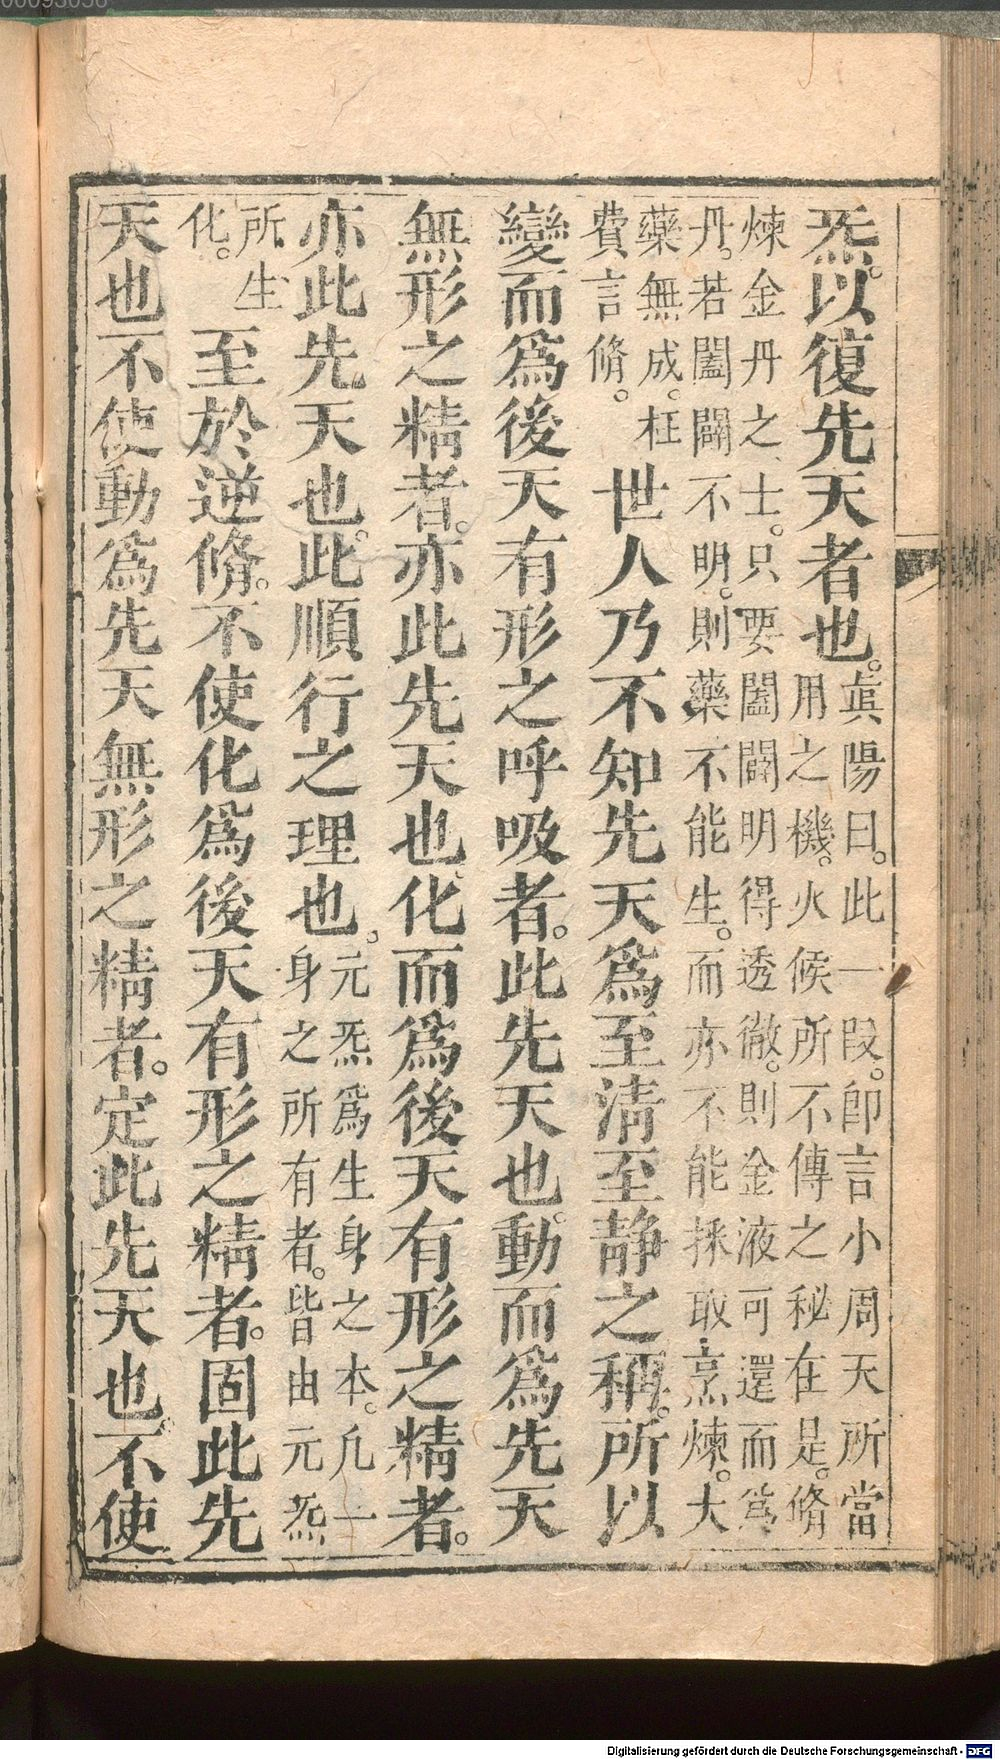 炁。以復先天者也。眞陽曰。此一段。卽言小周天所當
用之機。火候所不傳之秘在是。脩
煉金丹之士。只要闔闢明得透徹。則金液可還而爲
丹。若闔闢不明。則藥不能生。而亦不能採取烹煉。大
藥無成。枉
費言脩。世人乃不知先天爲至清至静之稱。所以
變而爲後天有形之呼吸者。此先天也。動而爲先天
無形之精者。亦此先天也。化而爲後天有形之精者。
亦此先天也。此順行之理也。元炁爲生身之本。凢一
身之所有者。皆由元炁
所生
化。至於逆脩。不使化爲後天有形之精者。固此先
天也不使動爲先天無形之精者。定此先天也。不使
Digitalisierung gefördert durch die Deutsche Forschungsgemeinschaft - DFG